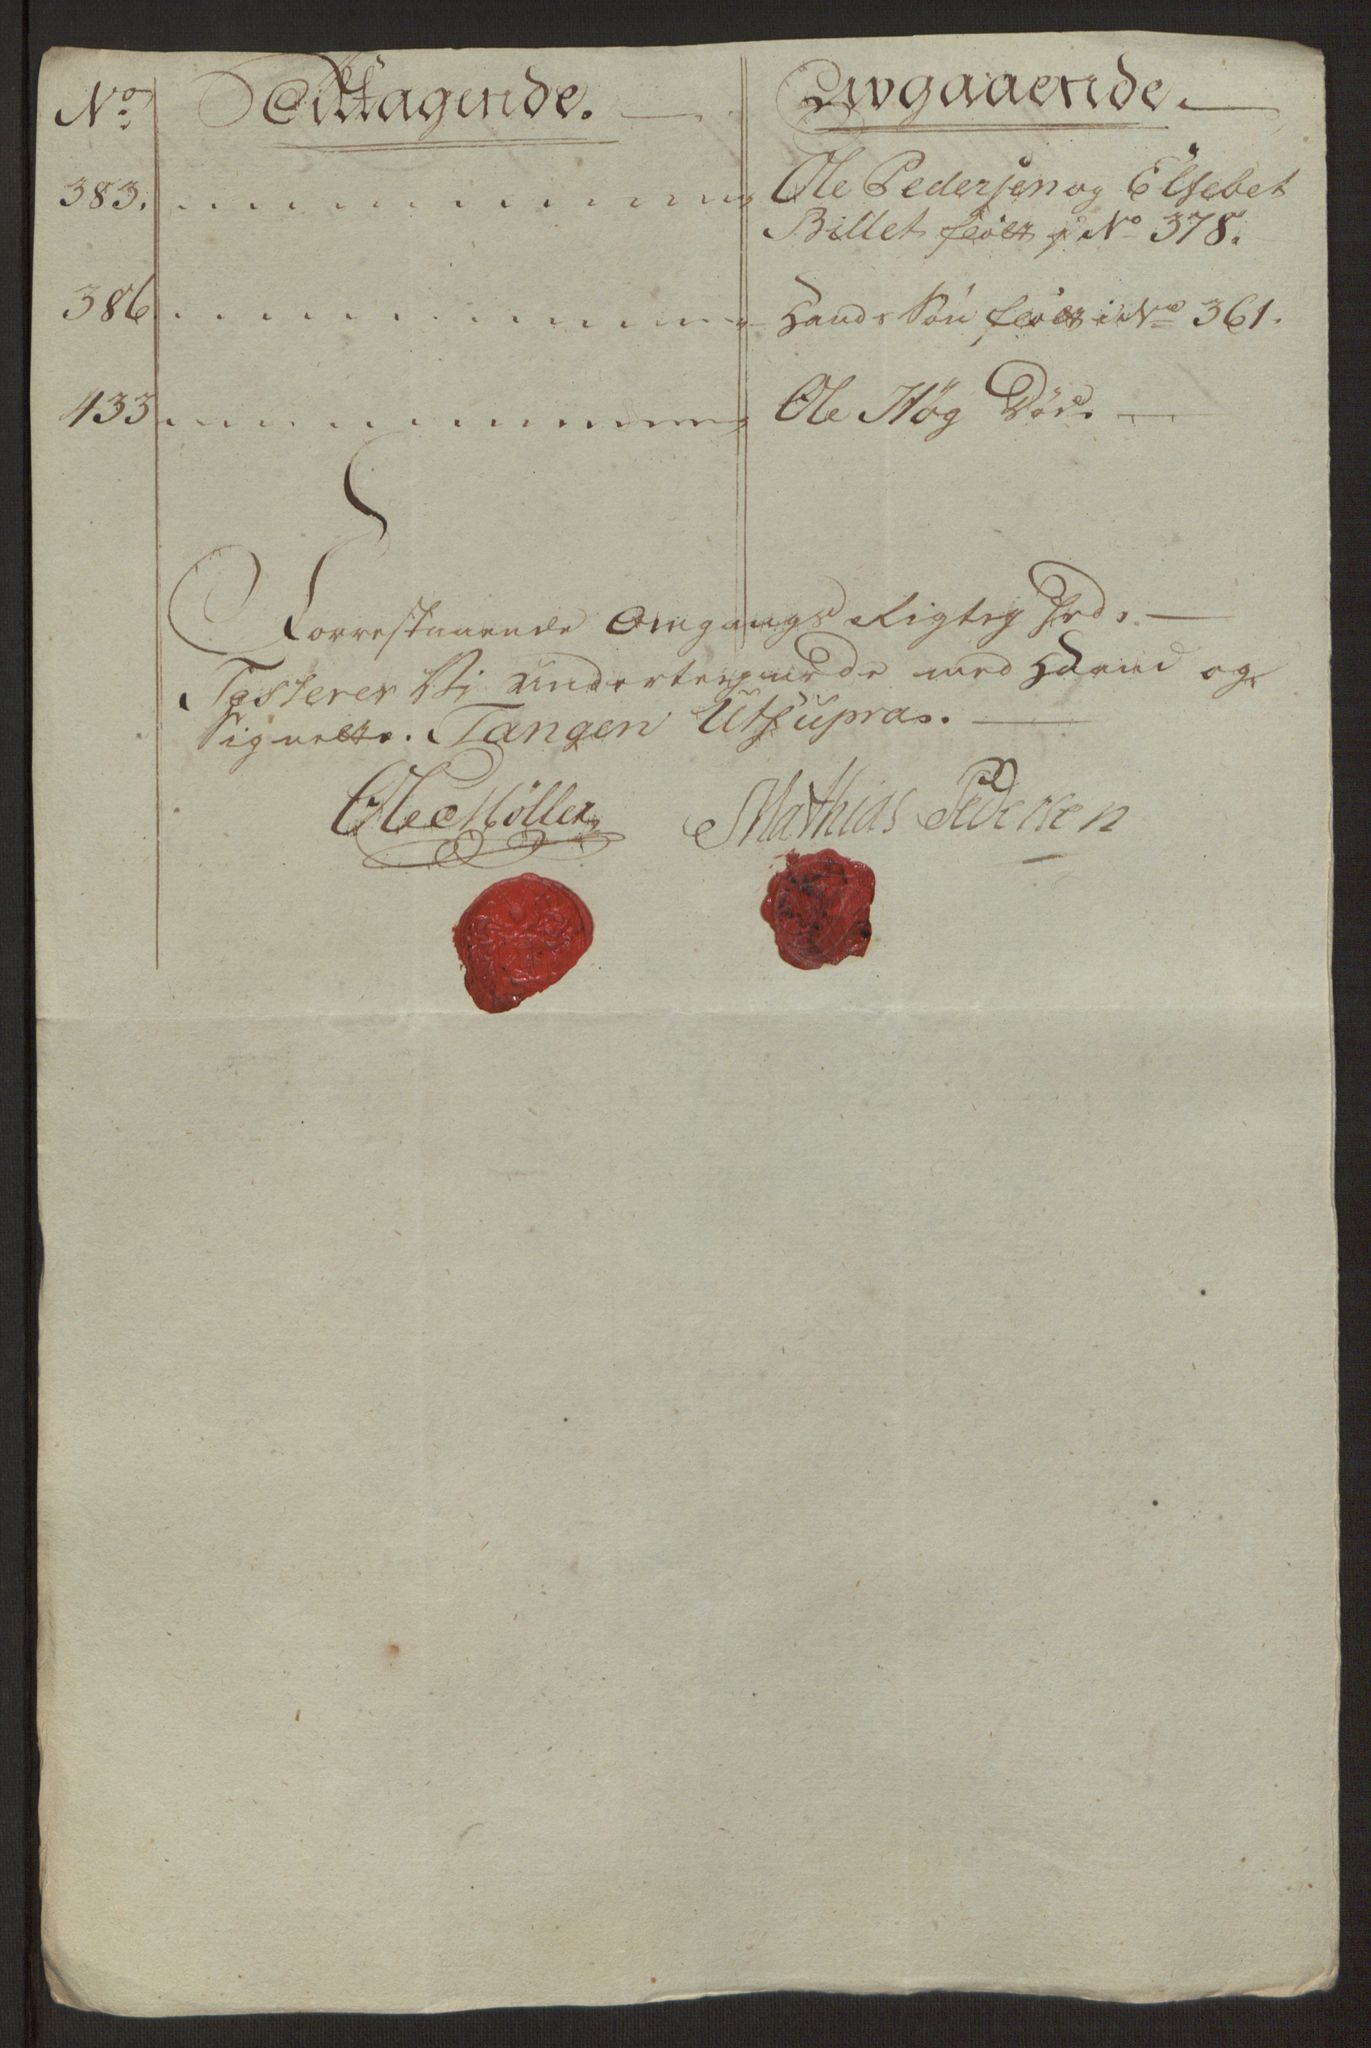 No Tiltagende. Avgaaende.
383. Ole Pedersen og Elsebet
Billet flött i No 378.
386 Hands Sön flött i No 361.
433 Ole Høg Død.
Forrestaaende Omgangs Rigtig hed
Testerer Vi underteignede med Haand og
Signette. Tangen Ut supra.
Ole Möller Mathias Pedersen